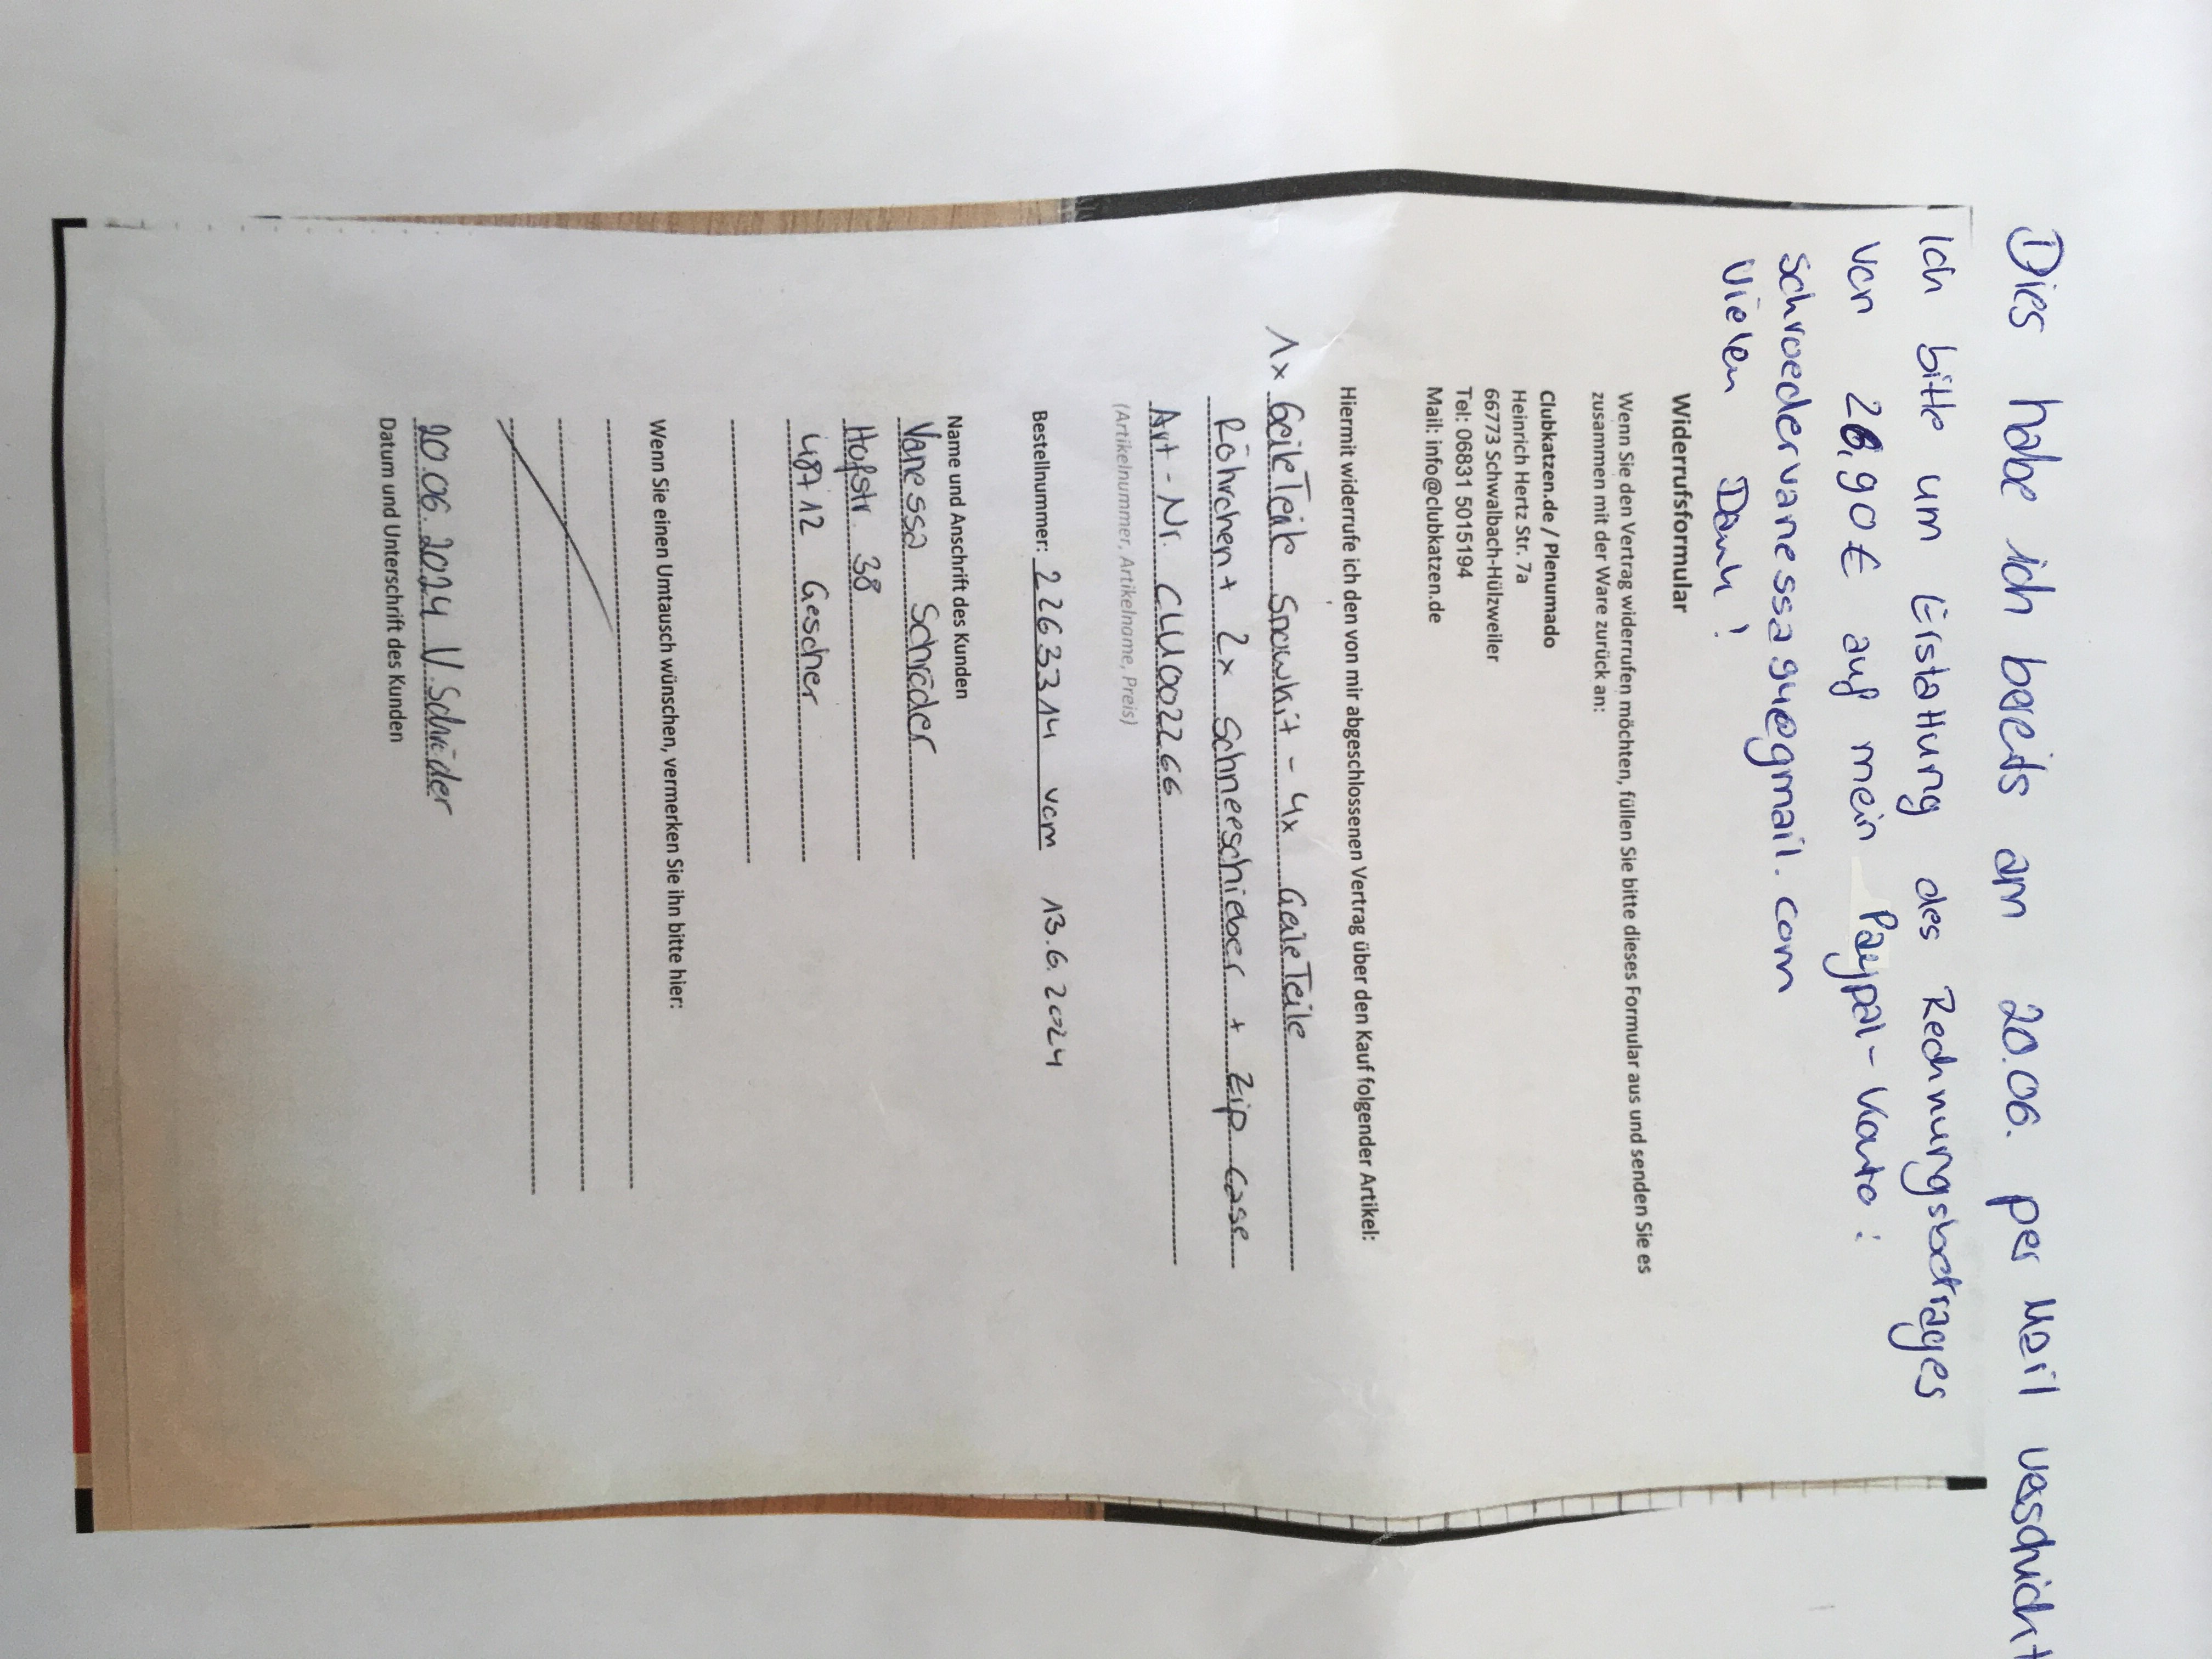 Dies habe ich bereits am 20.06. per Mail verschickt
Ich bitte um Erstattung des Rechnungsbetrages
von 26,90€ auf mein Paypal-Konto:
schroedervanessa@gmail.com
Vielen Dank!
Widerrufsformular
Wenn Sie den Vertrag widerrufen möchten, füllen Sie bitte dieses Formular aus und senden Sie es
zusammen mit der Ware zurück an:
Clubkatzen.de / Plenumado
Heinrich Hertz Str. 7a
66773 Schwalbach-Hülzweiler
Tel: 06831 5015194
Mail: info@clubkatzen.de
Hiermit widerrufe ich den von mir abgeschlossenen Vertrag über den Kauf folgender Artikel:
1x GeileTeile Snowkit - 4x GeileTeile
Röhrchen + 2x Schneeschieber + Zip Case
Art-Nr. CLU002266
(Artikelnummer, Artikelname, Preis)
Bestellnummer: 2263314 vom 13.6.2024
Name und Anschrift des Kunden
Vanessa Schröder
Hofstr. 38
48712 Gescher
Wenn Sie einen Umtausch wünschen, vermerken Sie ihn bitte hier:
20.06.2024 V. Schröder
Datum und Unterschrift des Kunden